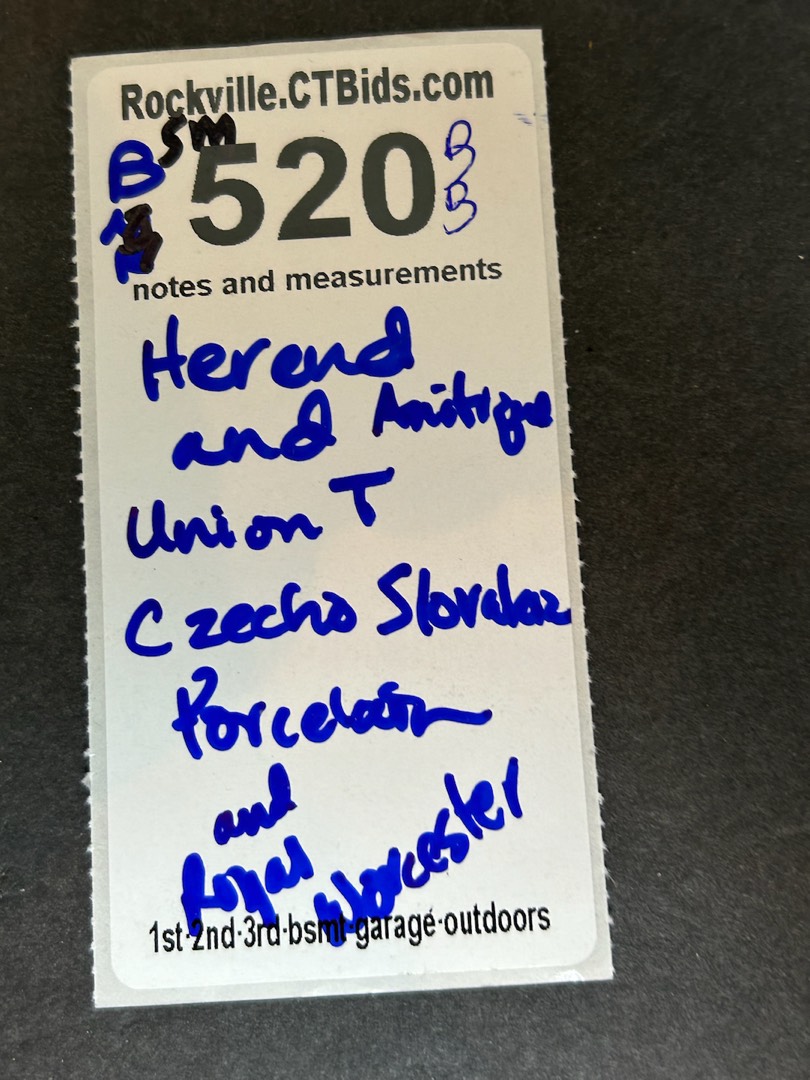 Rockville.CTBids.com
SM
B 520 B
B
notes and measurements
Herend
and Anitique
Union T
Czecho Slovakia
Porcelain
and
Royal Worcester
1st·2nd·3rd·bsmt·garage·outdoors